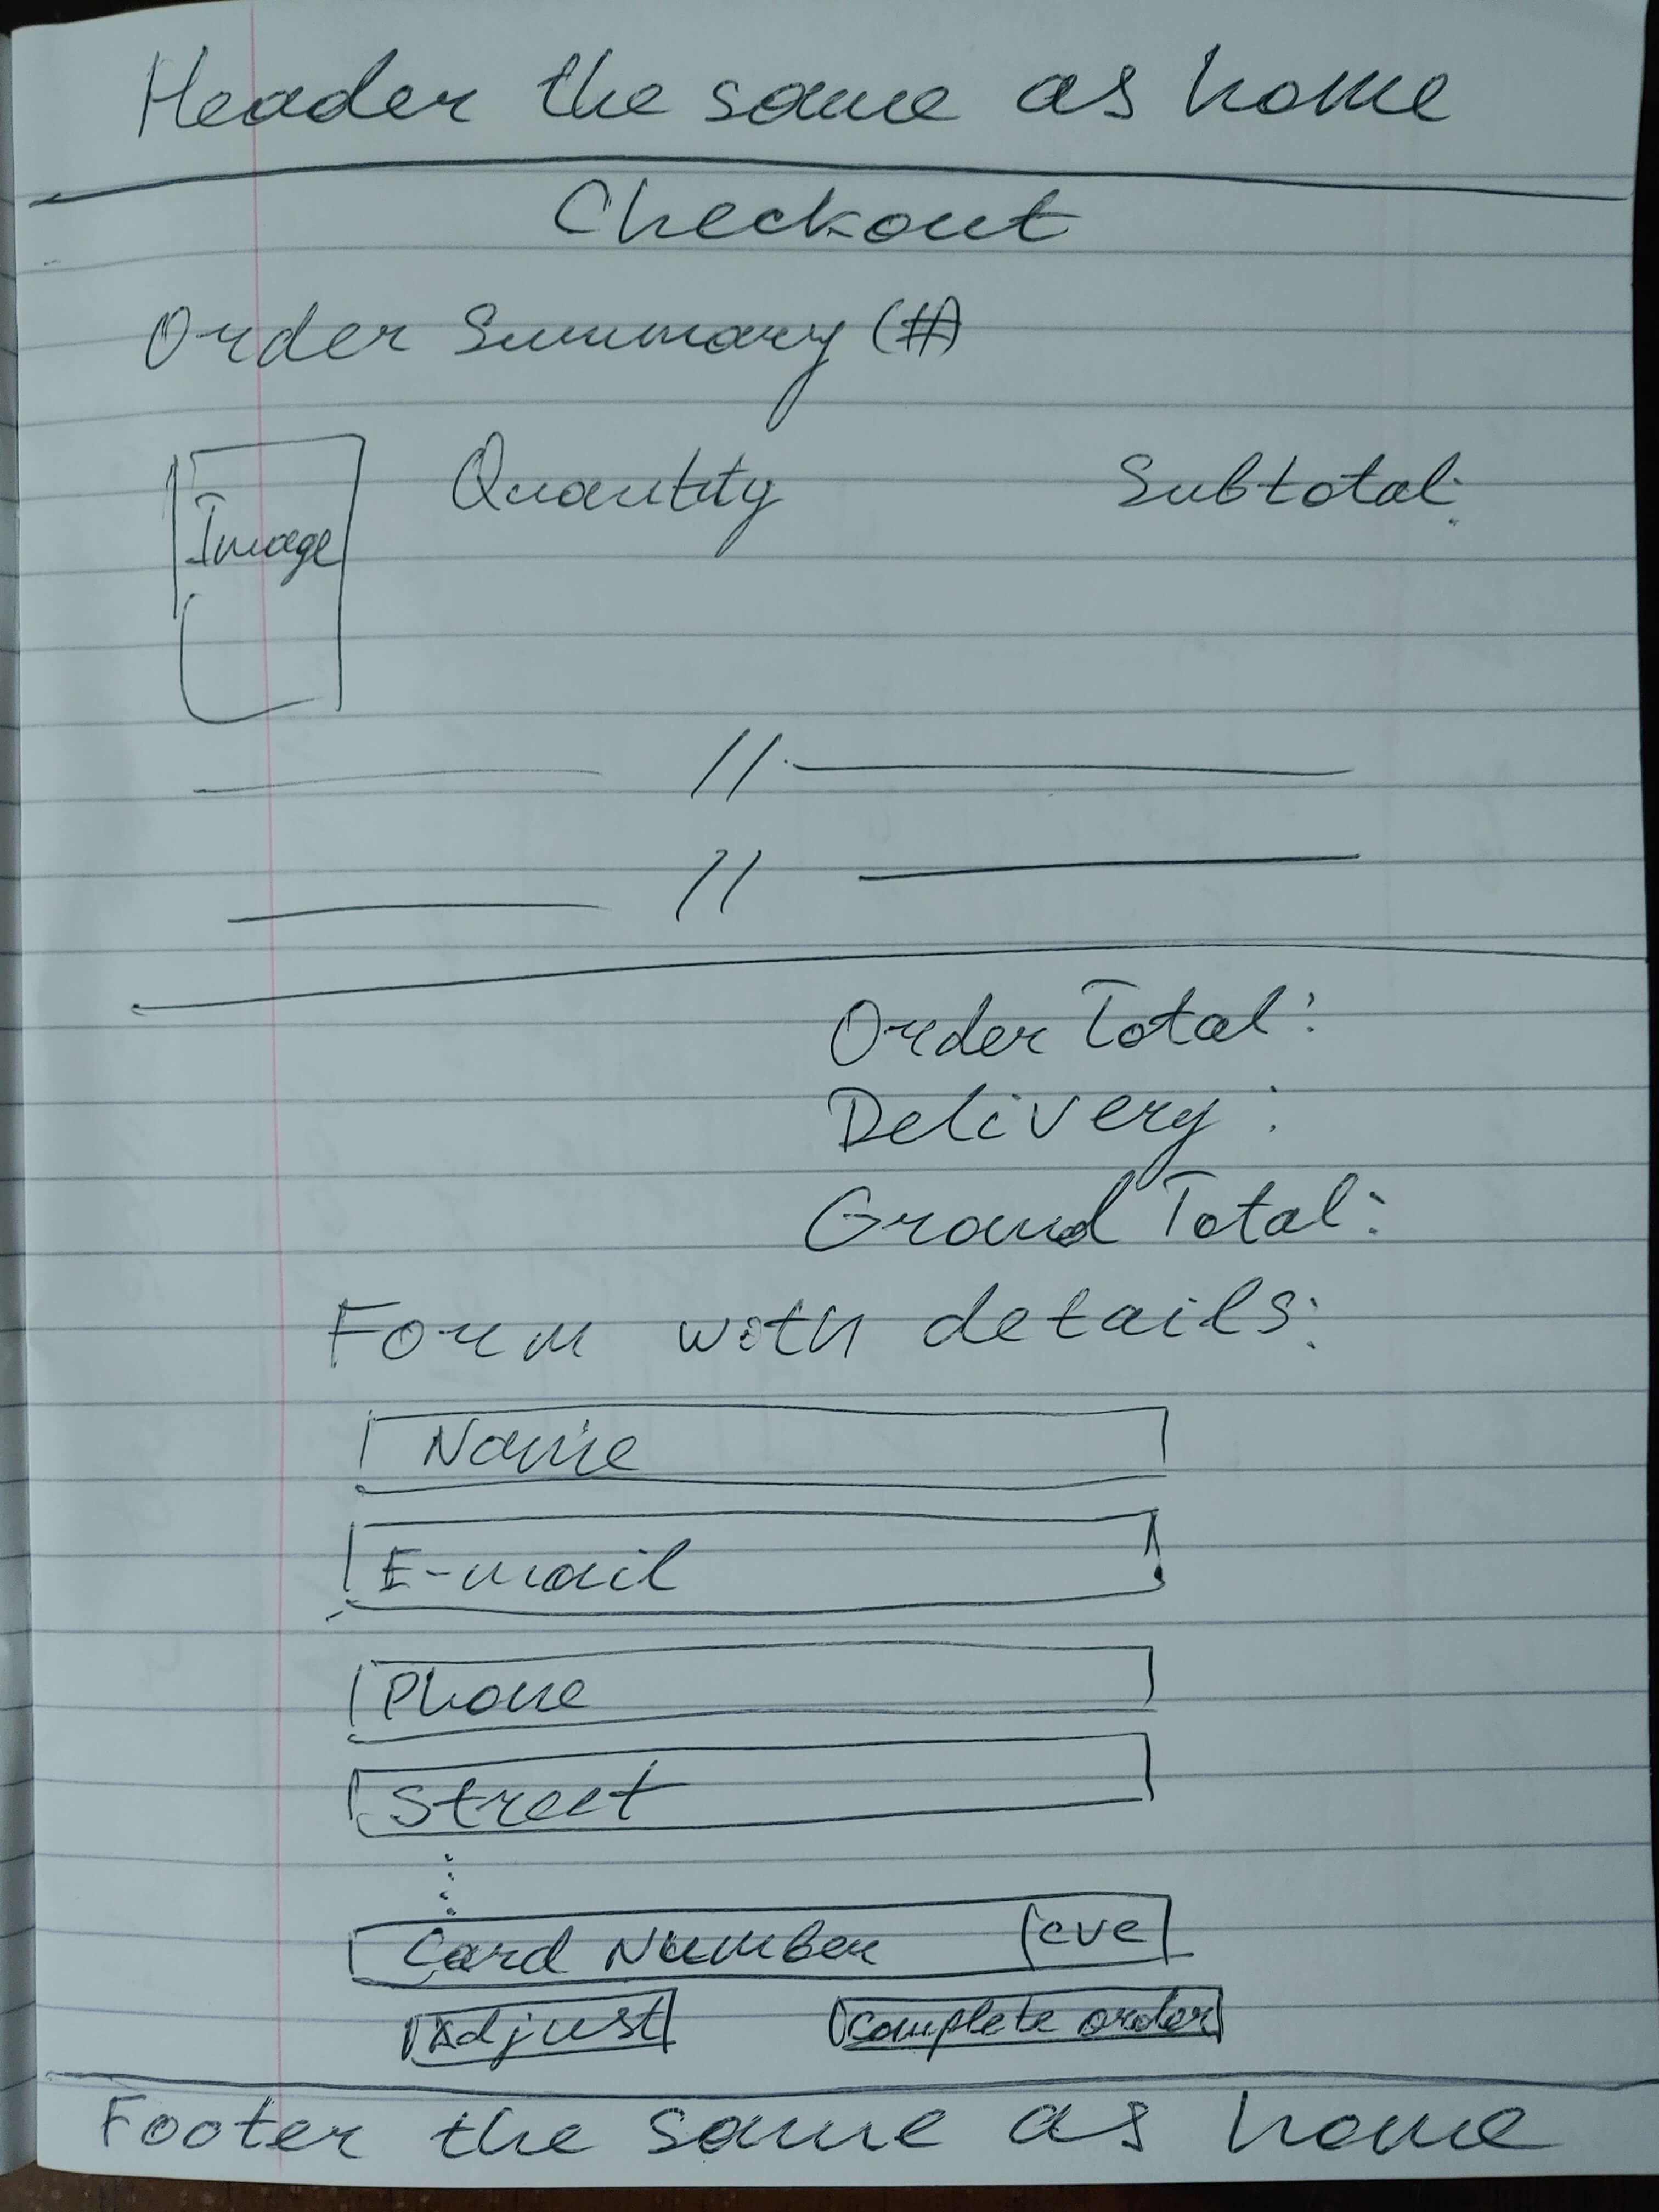 Header the same as home
Checkout
Order Summary (#)
Image
Quantity
Subtotal:
//
//
Order Total:
Delivery :
Grand Total:
Form with details:
Name
E-mail
Phone
Street
Card Number
cvc
Adjust
complete order
Footer the same as home